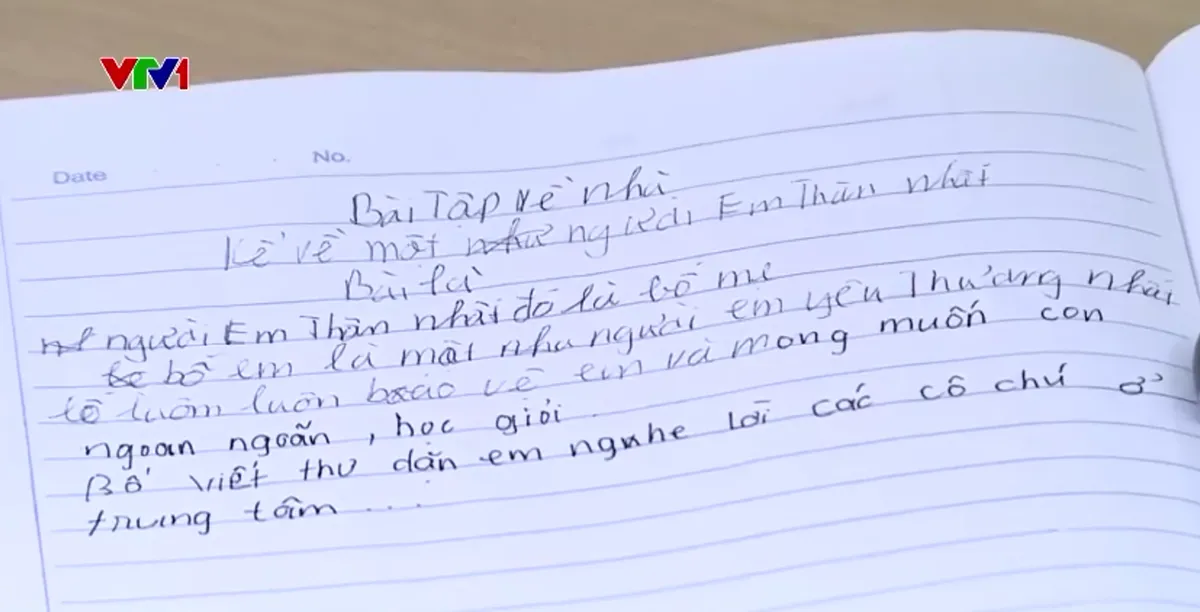 VTV1
Date No.
Bài Tập về nhà
Kể về một như người Em Thân nhất
Bài là
người Em Thân nhất đó là bố mẹ
bố em là một như người em yêu Thương nhất
bố luôm luôn bảo vẽ em và mong muốn con
ngoan ngoãn, học giỏi.
Bố viết thư dặn em ngnhe lời các cô chú ở
trung tâm ...